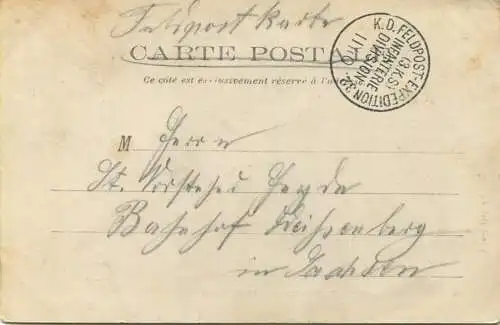 Feldpostkarte
CARTE POSTALE
Ce côté est exclusivement réservé à l'adresse
K.D. FELDPOST-EXPEDITION 32.
INFANTERIE
DIVISION
(3.K.S)
11/10
M Herrn
St. Vorsteher
Bahnhof
in Sachsen